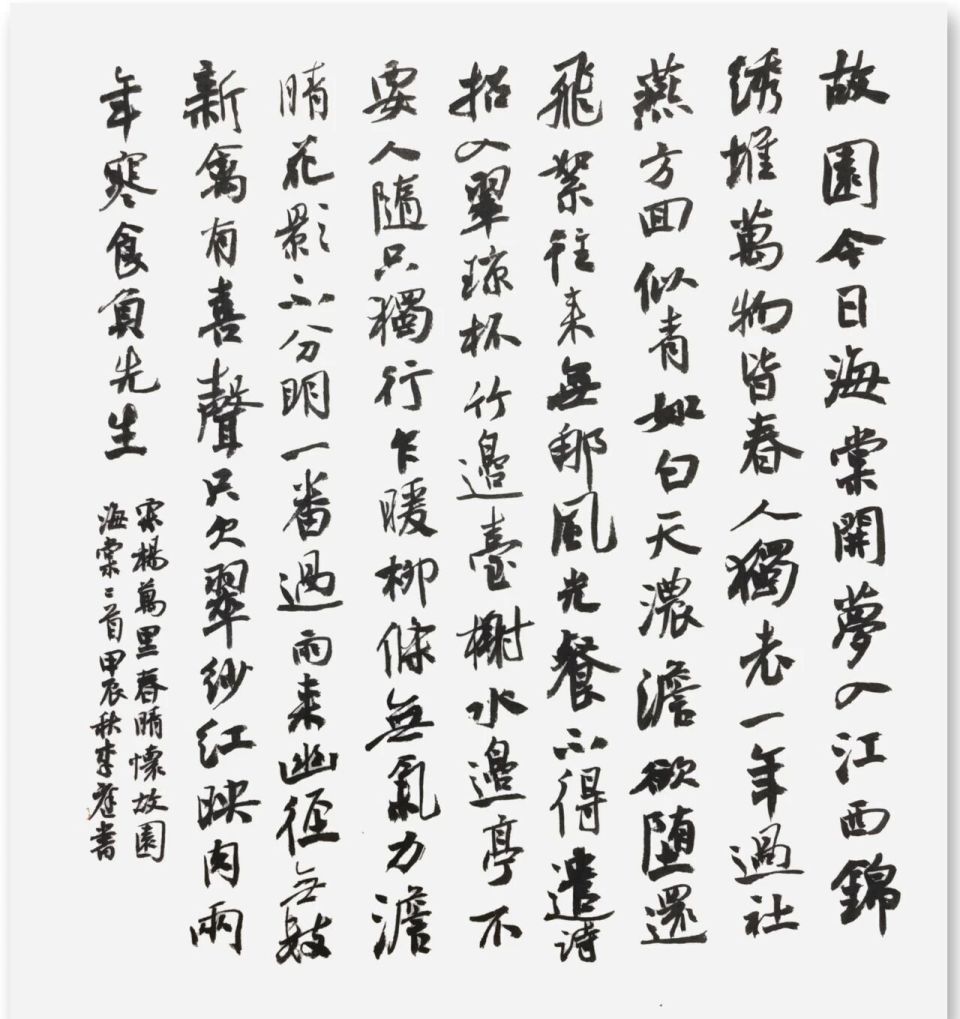 故園今日海棠開夢入江西錦
绣堆萬物皆春人獨老一年過社
燕方回似青如白天濃澹欲堕還
飛絮往来無那風光餐不得遣詩
招入翠琼杯竹邉臺榭水邉亭不
要人隨只獨行乍暖柳條無氣力澹
晴花影不分明一番過雨来幽徑無數
新禽有喜聲只欠翠纱红映肉兩
年寒食負先生
宋楊萬里春晴懷故園
海棠二首甲辰秋李書